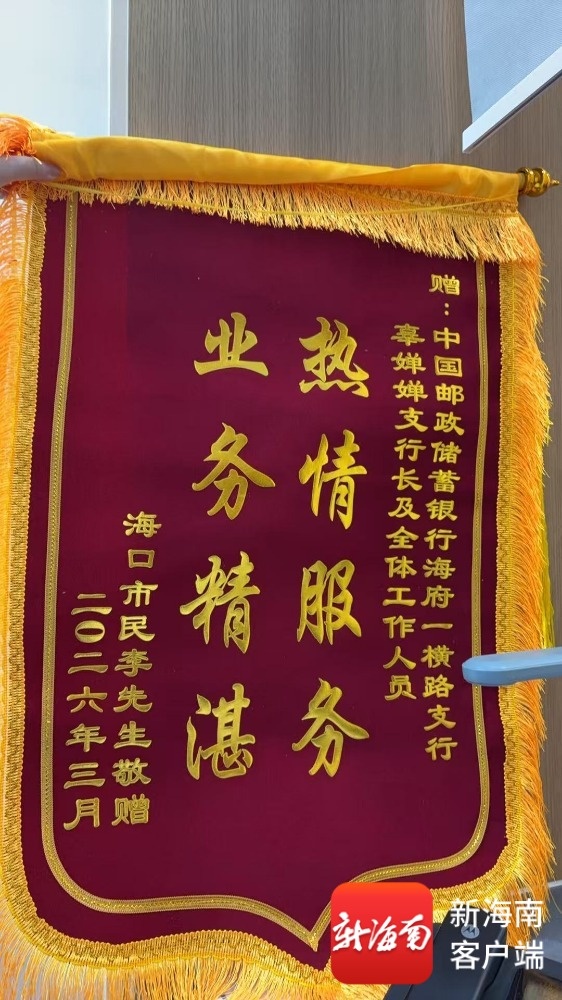 赠：中国邮政储蓄银行海府一横路支行
辜婵婵支行长及全体工作人员
热情服务
业务精湛
海口市民李先生敬赠
二〇二六年三月
新海南
新海南
客户端